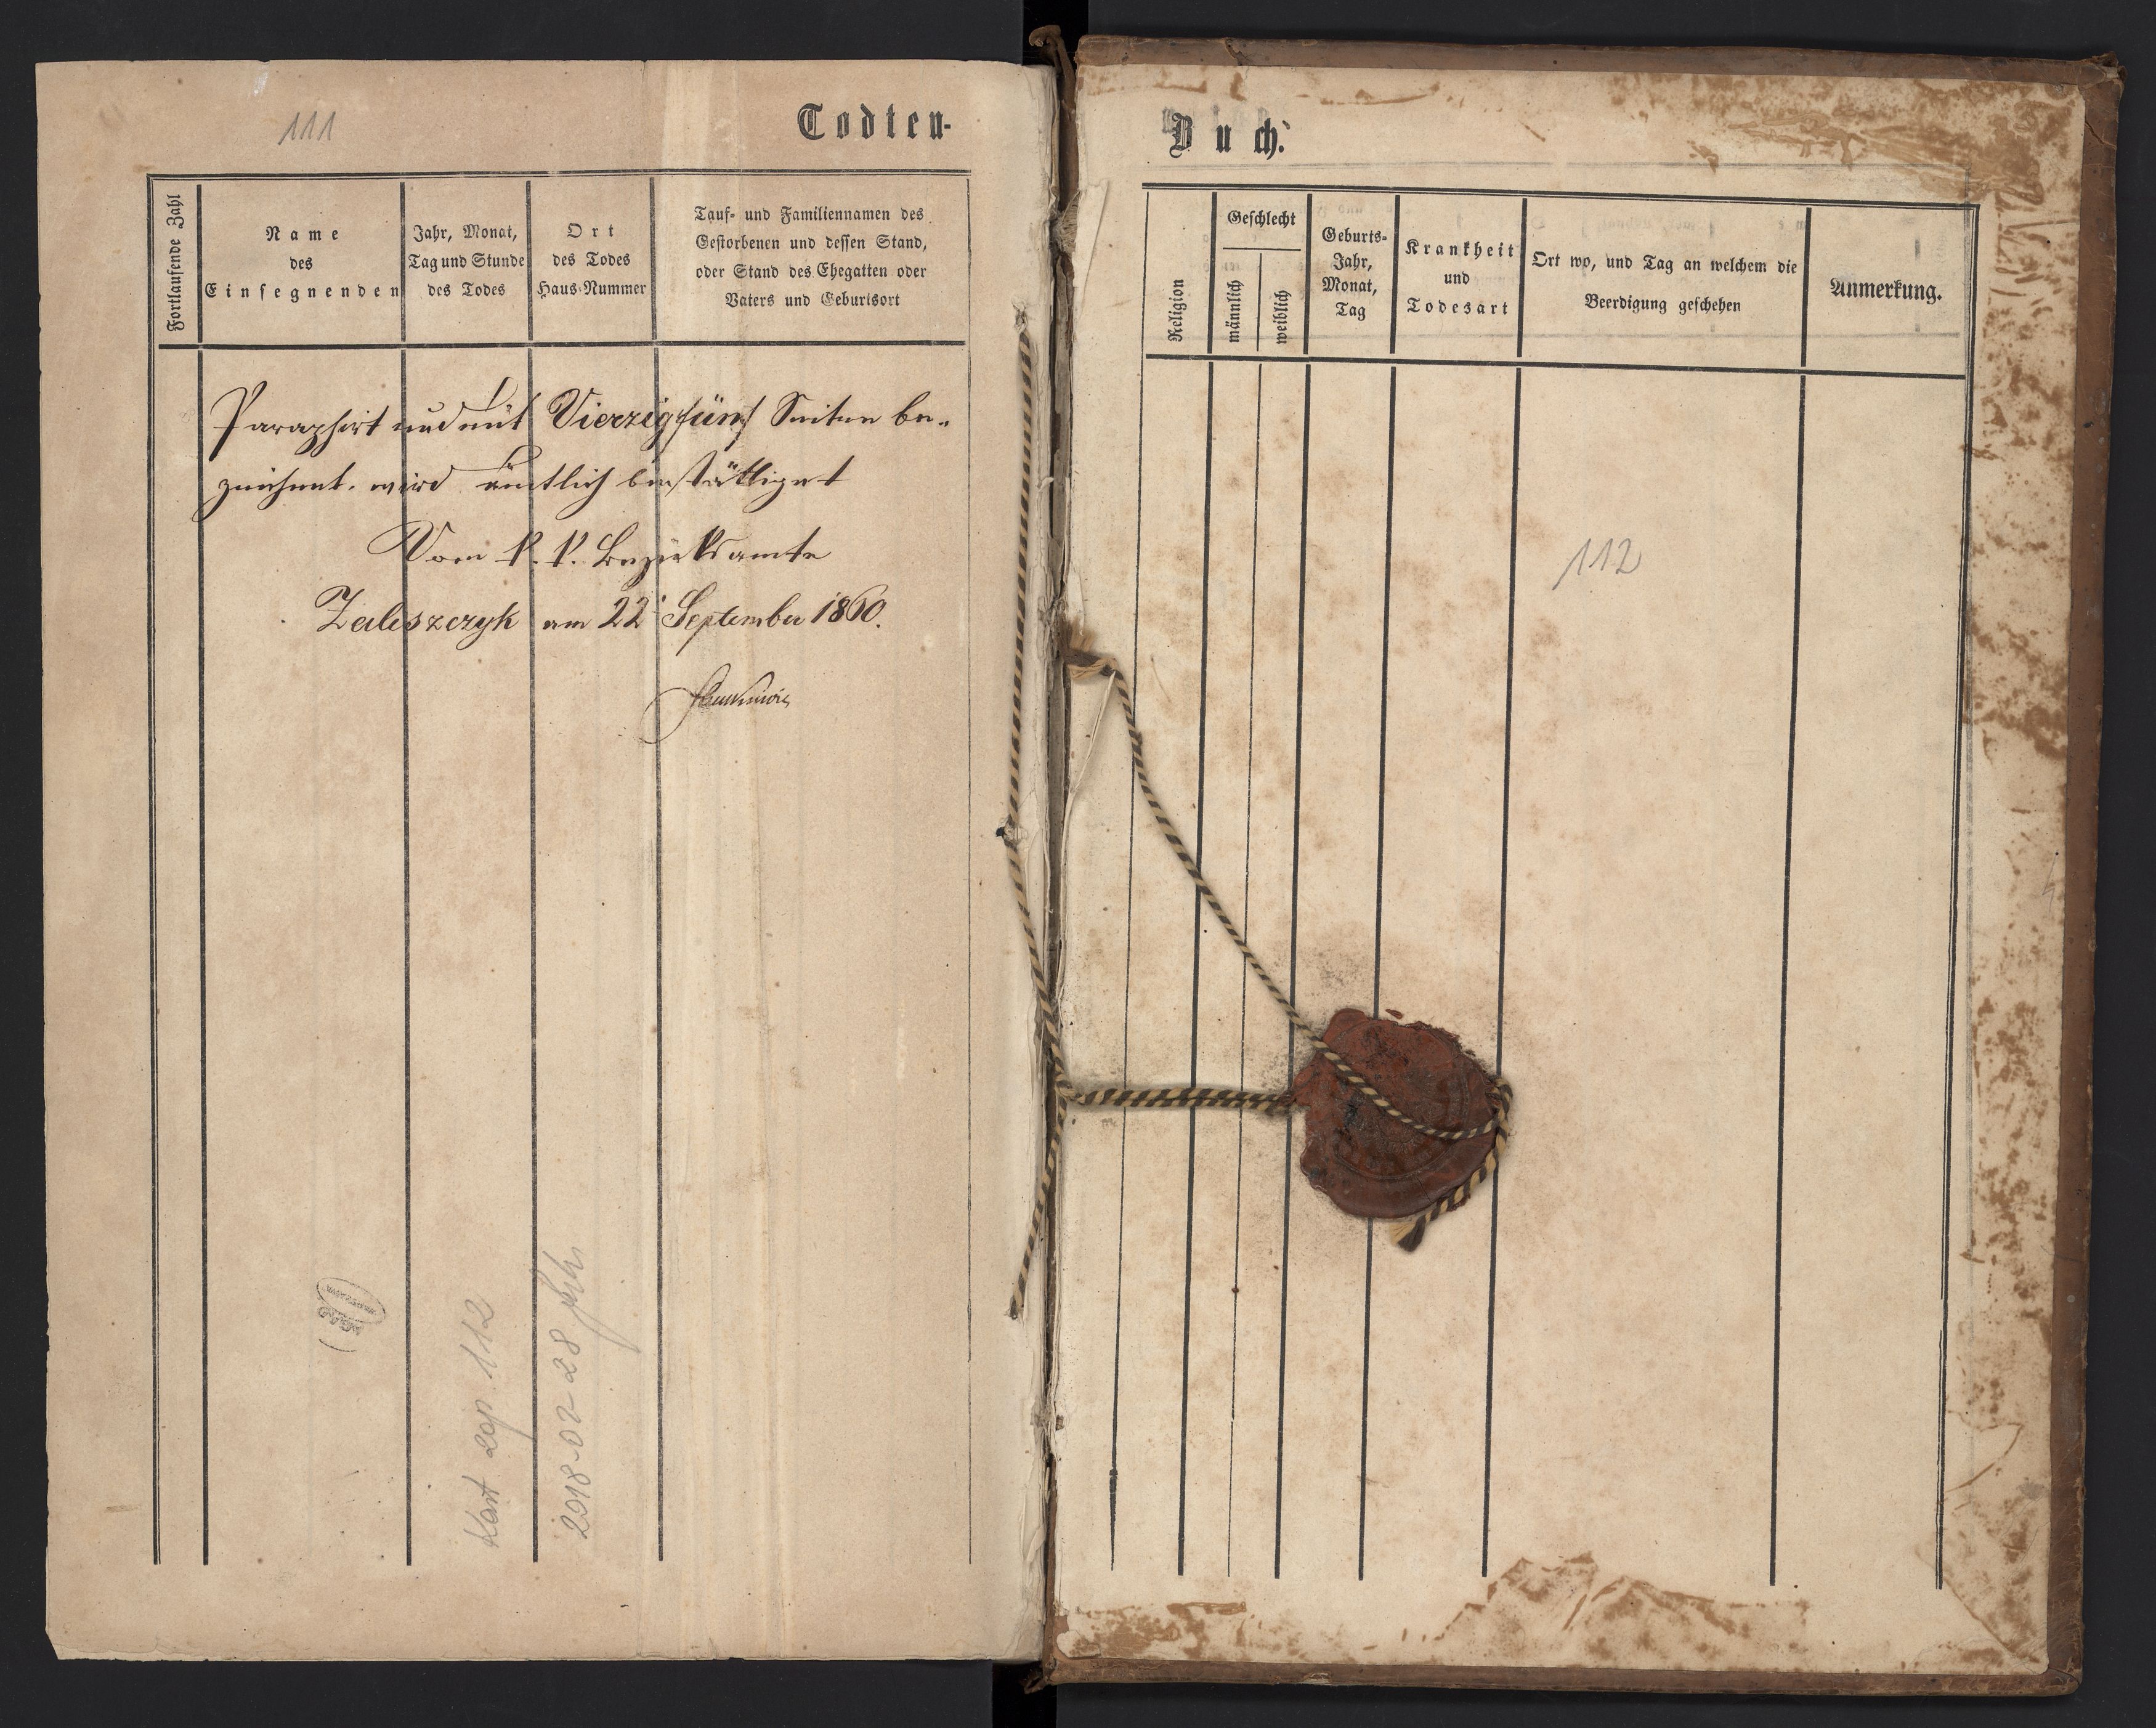 111
Todten-
Fortlaufende Zahl
Name
des
Einsegnenden
Jahr, Monat,
Tag und Stunde
des Todes
Ort
des Todes
Haus-Nummer
Tauf- und Familiennamen des
Gestorbenen und dessen Stand,
oder Stand des Ehegatten oder
Vaters und Geburtsort
Paraphirt und mit Vierzigfünf Seiten be-
zeichnet. wird ämtlich bestättiget
Vom k. k. Bezirksamte
Zaleszczyk am 22 September 1860.
Kart zap. 112
2018-02-28
Buch.
Religion
Geschlecht
männlich
weiblich
Geburts-
Jahr,
Monat,
Tag
Krankheit
und
Todesart
Ort wo, und Tag an welchem die
Beerdigung geschehen
Anmerkung.
112